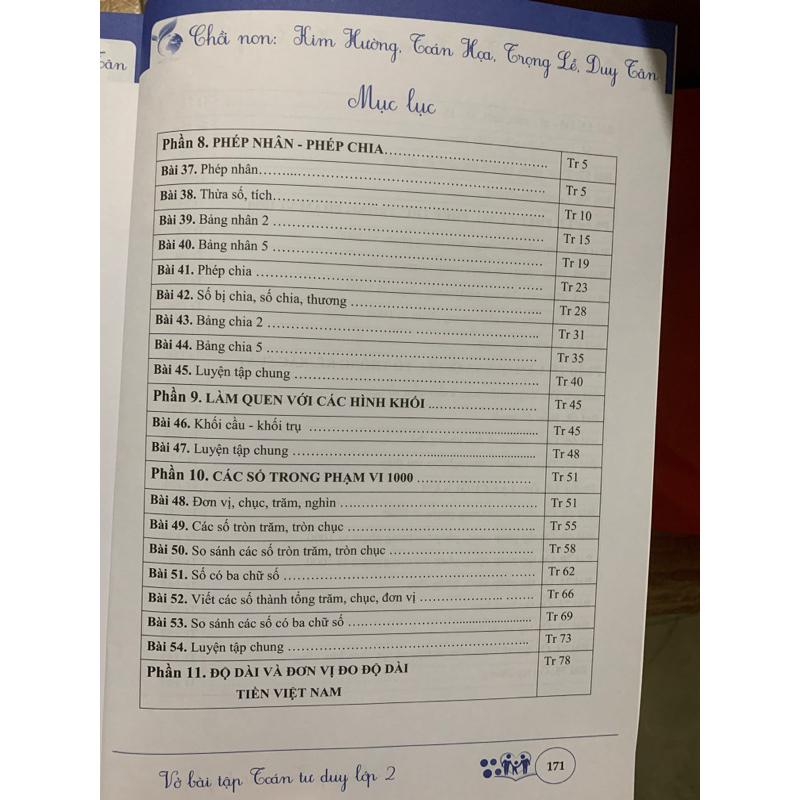 Tân
Chồi non: Kim Hường, Toán Họa, Trọng Lễ, Duy Tân
Mục lục
Phần 8. PHÉP NHÂN - PHÉP CHIA.......................................... Tr 5
Bài 37. Phép nhân................................................................ Tr 5
Bài 38. Thừa số, tích............................................................ Tr 10
Bài 39. Bảng nhân 2 ............................................................ Tr 15
Bài 40. Bảng nhân 5 ............................................................ Tr 19
Bài 41. Phép chia ................................................................ Tr 23
Bài 42. Số bị chia, số chia, thương ........................................ Tr 28
Bài 43. Bảng chia 2 ............................................................. Tr 31
Bài 44. Bảng chia 5 ............................................................. Tr 35
Bài 45. Luyện tập chung ...................................................... Tr 40
Phần 9. LÀM QUEN VỚI CÁC HÌNH KHỐI ........................... Tr 45
Bài 46. Khối cầu - khối trụ ................................................... Tr 45
Bài 47. Luyện tập chung ...................................................... Tr 48
Phần 10. CÁC SỐ TRONG PHẠM VI 1000 ............................ Tr 51
Bài 48. Đơn vị, chục, trăm, nghìn .......................................... Tr 51
Bài 49. Các số tròn trăm, tròn chục ....................................... Tr 55
Bài 50. So sánh các số tròn trăm, tròn chục ........................... Tr 58
Bài 51. Số có ba chữ số ....................................................... Tr 62
Bài 52. Viết các số thành tổng trăm, chục, đơn vị .................... Tr 66
Bài 53. So sánh các số có ba chữ số ..................................... Tr 69
Bài 54. Luyện tập chung ...................................................... Tr 73
Phần 11. ĐỘ DÀI VÀ ĐƠN VỊ ĐO ĐỘ DÀI Tr 78
TIỀN VIỆT NAM
Vở bài tập Toán tư duy lớp 2 171